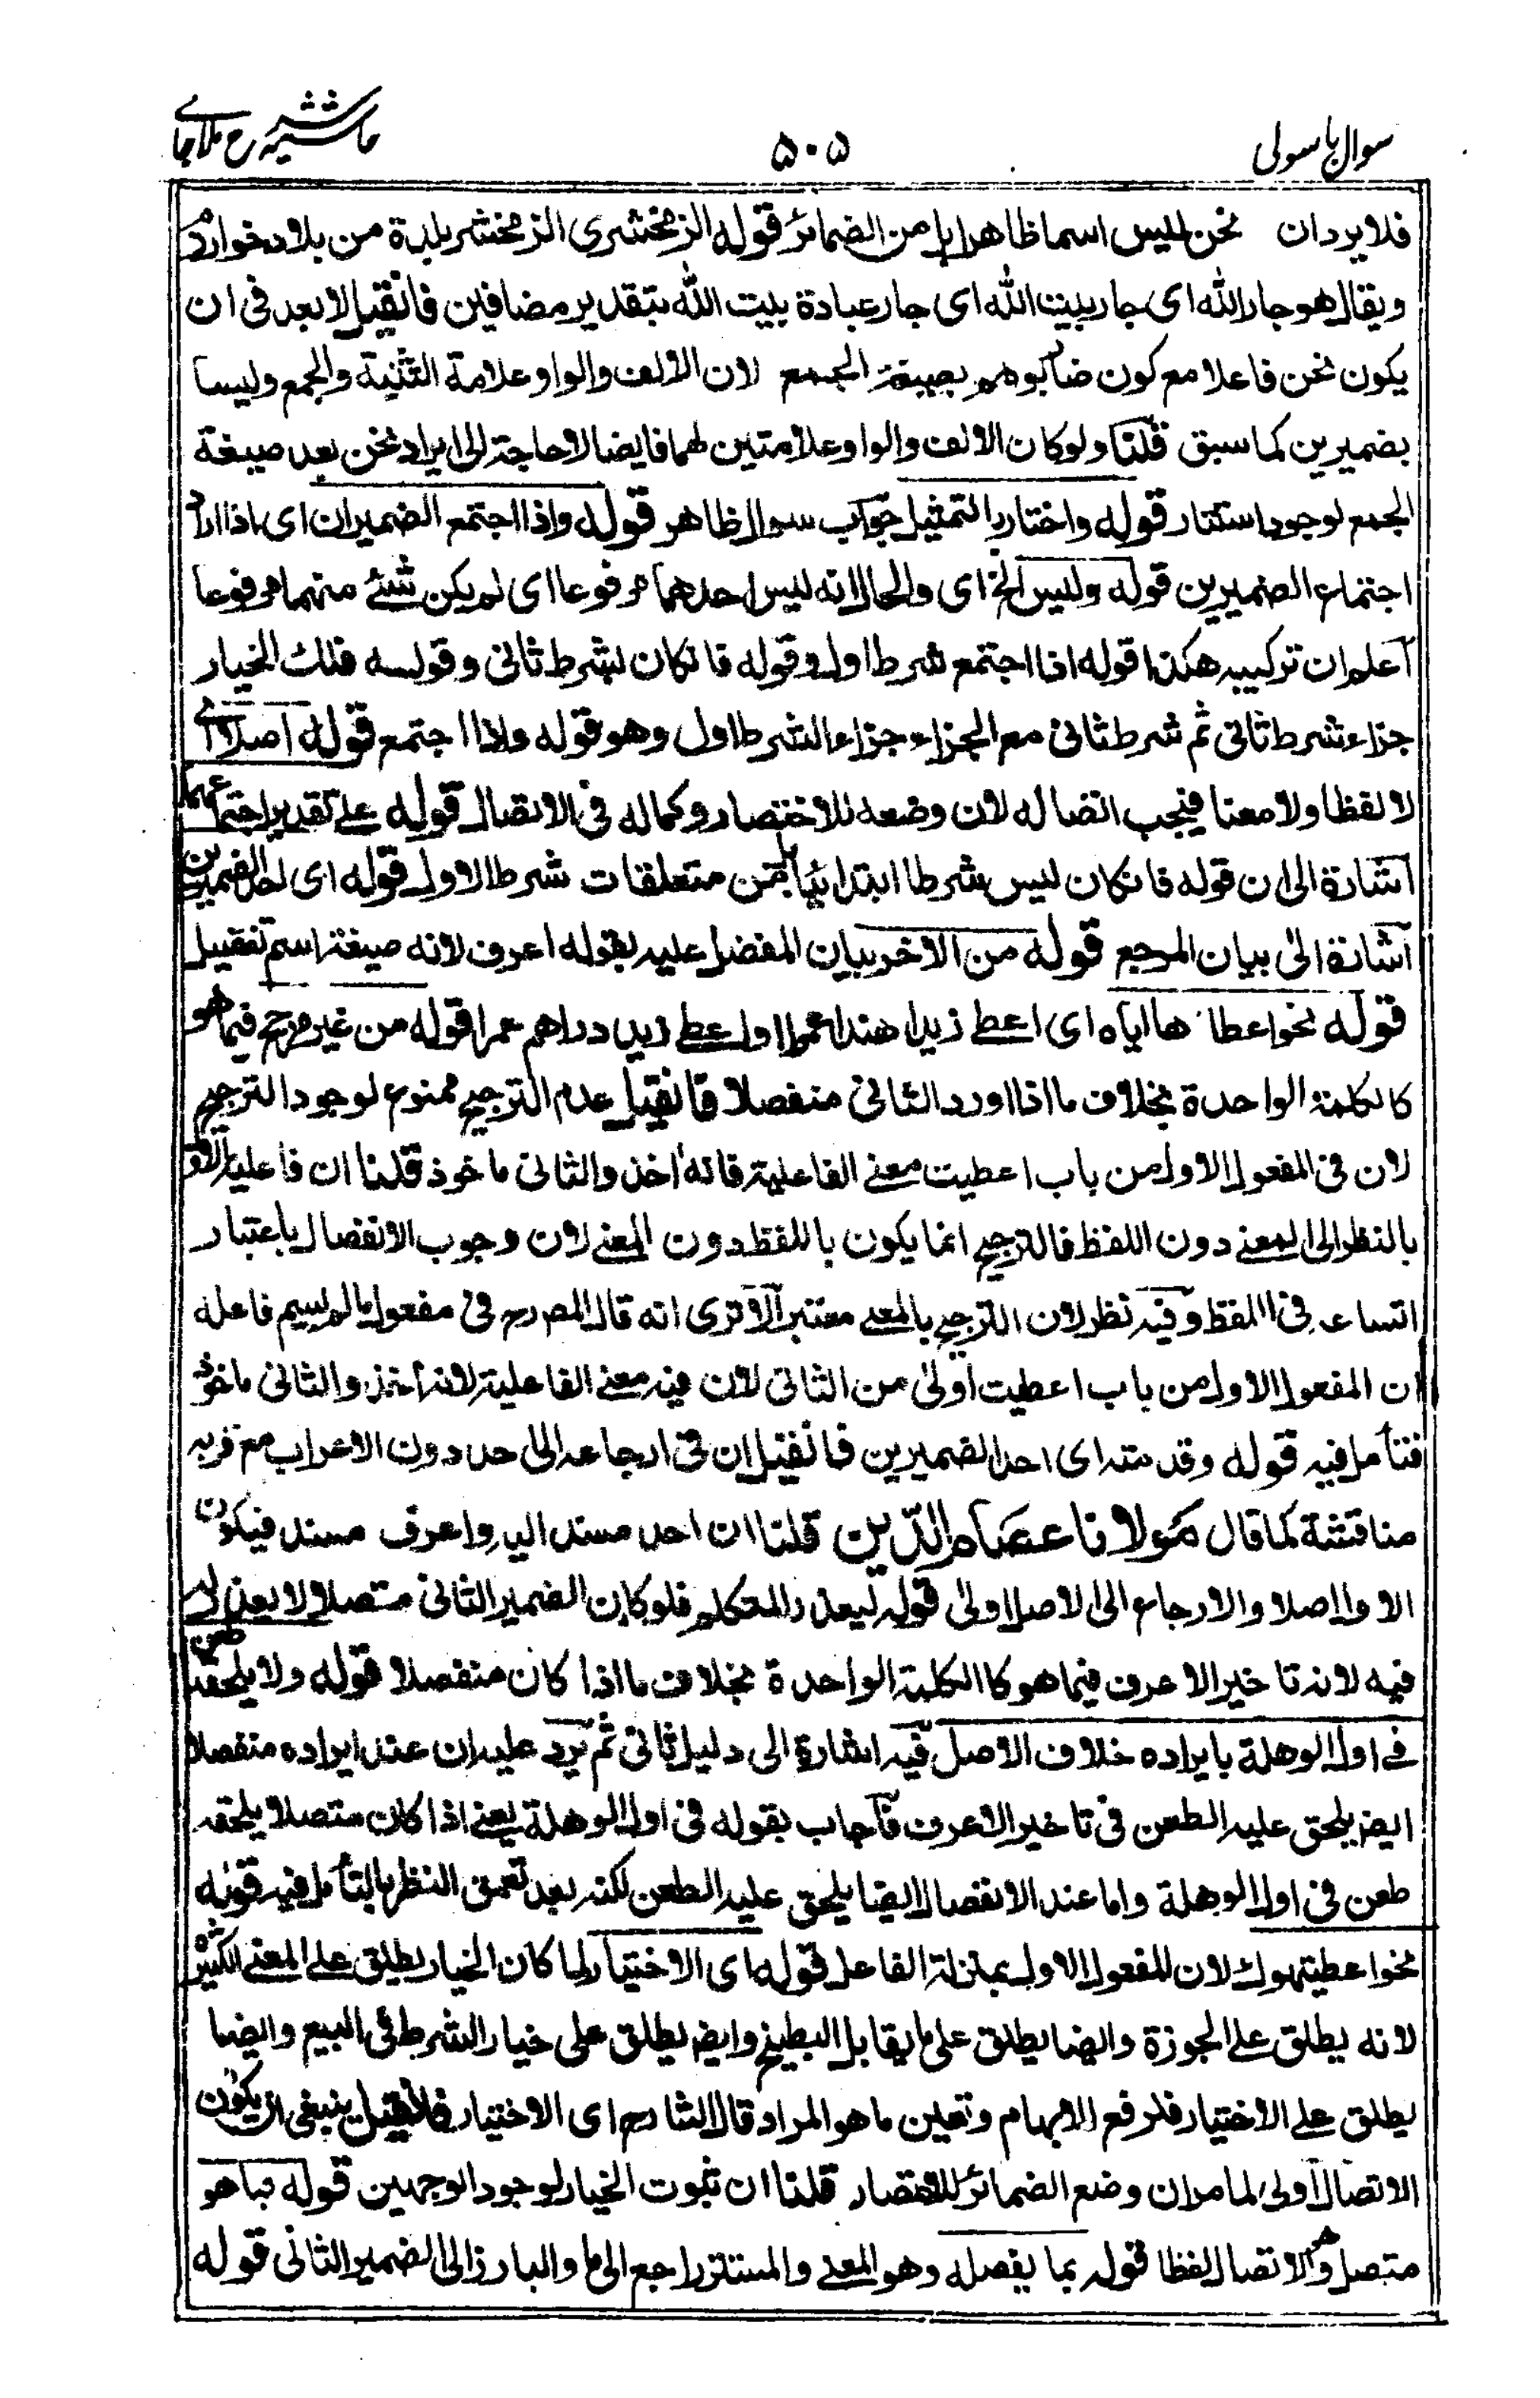 سوال باسولی
۵۰۵
حاشیه شرح ملا جامے
فلا يرد ان نحن ليس اسما ظاهرا بل من الضمائر قوله الزمخشرى الزمخشر بلدة من بلاد خوارزم
ويقال هو جار الله اى جار بيت الله اى جار عبادة بيت الله بتقدير مضافين فانقيل لا بعد فى ان
يكون نحن فاعلا مع كون ضاربوهم بصيغة الجمع لان الالف والواو علامة التثنية والجمع وليسا
بضميرين كما سبق قلنا ولو كان الالف والواو علامتين لهما فايضا لا حاجة الى ايراد نحن بعد صيغة
الجمع لوجود استتار قوله واختار بالتمثيل جواب سوال ظاهر قوله واذا اجتمع الضميران اى اذا اراد
اجتماع الضميرين قوله وليس الخ اى والحال انه ليس احدهما مرفوعا اى لم يكن شئ منهما مرفوعا
اعلم ان تركيبه هكذا قوله اذا اجتمع شرط اول وقوله فانكان شرط ثانى وقوله فلك الخيار
جزاء شرط ثانى ثم شرط ثانى مع الجزاء جزاء الشرط اول وهو قوله واذا اجتمع قوله اصلا اى
لا لفظا ولا معنا فيجب اتصاله لان وضعه للاختصار وكماله فى الاتصال قوله على تقدير اجتماعهما
اشارة الى ان قوله فانكان ليس شرطا ابتدائيا بل من متعلقات شرط الاول قوله اى احد الضميرين
اشارة الى بيان المرجع قوله من الاخر بيان المفضل عليه بقوله اعرف لانه صيغة اسم تفضيل
قوله نحو اعطاها اياه اى اعطى زيدا هندا عمرا او اعطى زيد دراهم عمرا قوله من غير مرجح فيما هو
كالكلمة الواحدة بخلاف ما اذا اورد الثانى منفصلا فانقيل عدم الترجيح ممنوع لوجود الترجيح
لان فى المفعول الاول من باب اعطيت معنى الفاعلية فانه اخذ والثانى ماخوذ قلنا ان فاعلية الاول
بالنظر الى المعنى دون اللفظ فالترجيح انما يكون باللفظ دون المعنى لان وجوب الانفصال باعتبار
اتساع فى اللفظ وفيه نظر لان الترجيح بالمعنى معتبر الا ترى انه قال المصرح فى مفعول ما لم يسم فاعله
ان المفعول الاول من باب اعطيت اولى من الثانى لان فيه معنى الفاعلية لانه اخذ والثانى ماخوذ
فتأمل فيه قوله وقدمته اى احد الضميرين فانقيل ان فى ارجاعه الى احد دون الاعراب مع قربه
مناقشة كما قال مولانا عصام الدين قلنا ان احد مسند اليه واعرف مسند فيكون
الاول اصلا والارجاع الى الاصل اولى قوله ليعذر المتكلم فلو كان الضمير الثانى متصلا لا يعذر
فيه لانه تاخير الاعرف فيما هو كالكلمة الواحدة بخلاف ما اذا كان منفصلا قوله ولا يلحقه طعن
فى اول الوهلة بايراده خلاف الاصل فيه اشارة الى دليل ثانى ثم يرد عليه ان عند ايراده منفصلا
ايض يلحق عليه الطعن فى تاخير الاعرف فأجاب بقوله فى اول الوهلة يعنى اذا كان متصلا يلحقه
طعن فى اول الوهلة واما عند الانفصال ايضا يلحق عليه الطعن لكنه بعد تعمق النظر بالتأمل فيه قوله
نحو اعطيتهوك لان المفعول الاول بمنزلة الفاعل قوله اى الاختيار لما كان الخيار يطلق على المعنى الكثير
لانه يطلق على الجوزة وايضا يطلق على ما يقابل البطيخ وايض يطلق على خيار الشرط فى البيع وايضا
يطلق على الاختيار فلرفع الابهام وتعين ما هو المراد قال الشارح اى الاختيار فانقيل ينبغى ان يكون
الاتصال اولى لما مر ان وضع الضمائر للاختصار قلنا ان ثبوت الخيار لوجود الوجهين قوله بما هو
متصل وهو الاتصال لفظا قوله بما يفصله وهو المعنى والمستتر راجع الى ما والبارز الى الضمير الثانى قوله